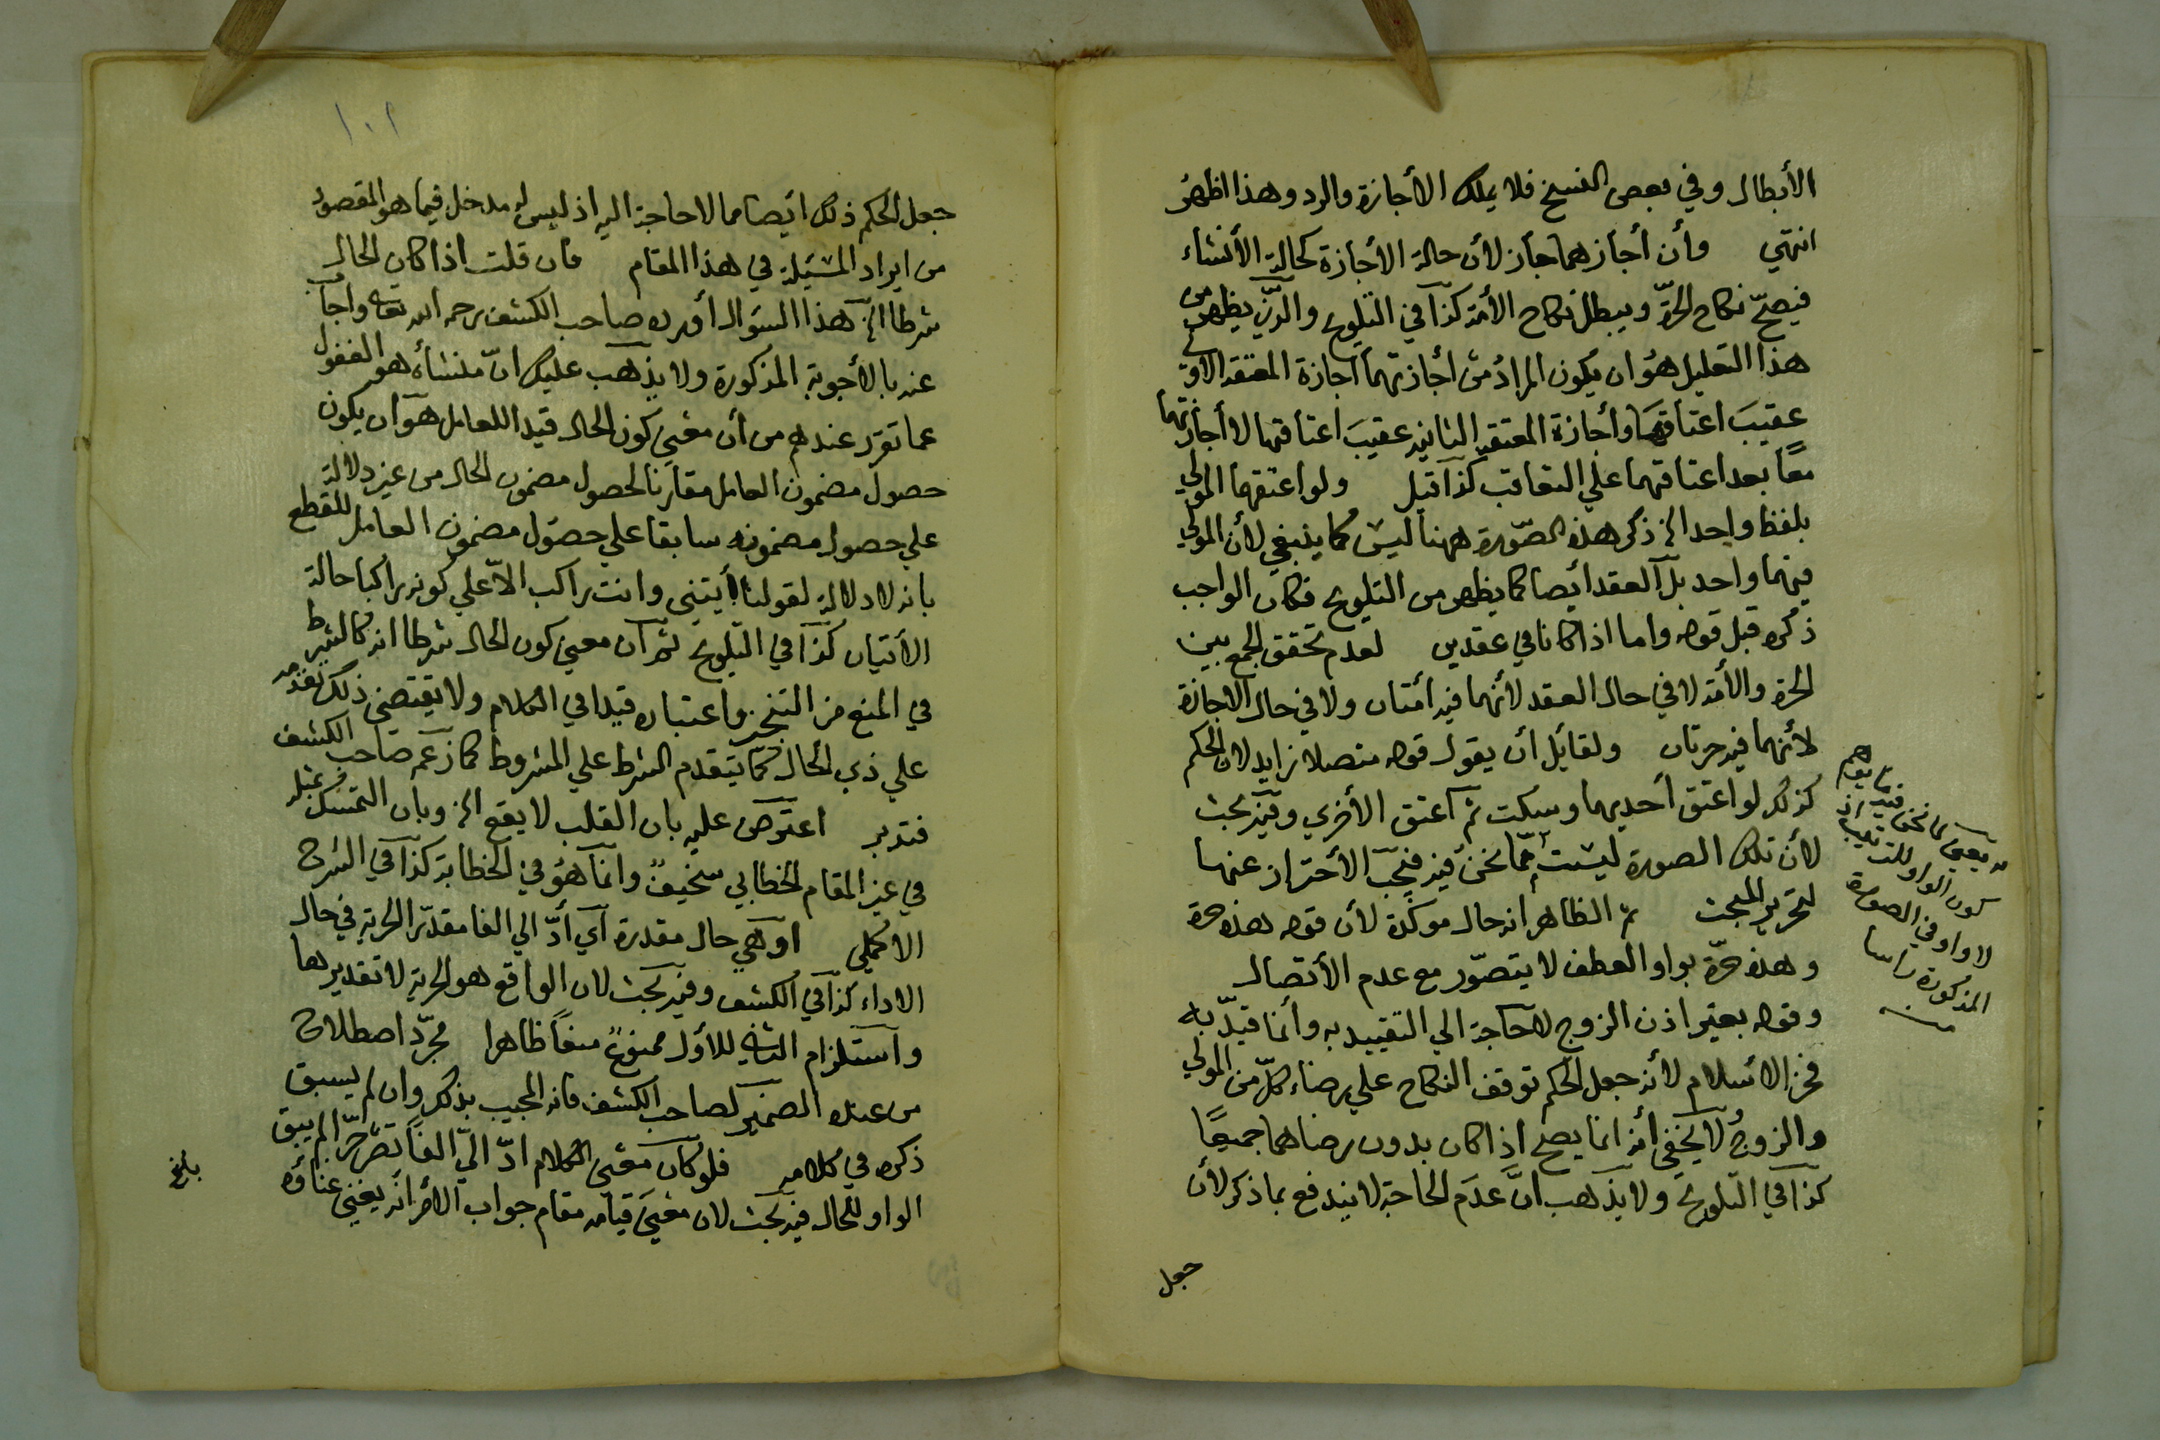 الأبطال وفي بعض النسخ فلا يملك الأجازة والرد وهذا اظهر
انتهي وأن أجازهما جاز لأن حالة الأجازة كحالة الأنشاء
فيصحّ نكاح الحرّة ويبطل نكاح الأمة كذا في التلويح والذي يظهر من
هذا التعليل هو ان يكون المراد من أجازتهما أجازة المعتقة الاولي
عقيب اعتاقها وأجازة المعتقة الثانية عقيب اعتاقها لا أجازتهما
معًا بعد اعتاقهما علي التعاقب كذا قيل ولو اعتقهما المولي
بلفظ واحد الخ ذكر هذه الصّورة ههنا ليس كما ينبغي لأن المولي
فيهما واحد بل العقد أيضا كما يظهر من التلويح فكان الواجب
ذكره قبل قوله واما اذا كانا في عقدين لعدم تحقق الجمع بين
الحرة والأمة لا في حال العقد لأنهما فيه أمتان ولا في حال الاجازة
لأنهما فيه حرتان ولقائل أن يقول قوله متصلا زايد لان الحكم
كذلك لو اعتق أحديهما وسكت ثم أعتق الأخري وفيه بحث
لأن تلك الصورة ليست ممّا نحن فيه فيجب الأحتراز عنها
لتحرير المبحث ثم الظاهر انه حال موكّدة لأن قوله هذه حرة
وهذه حرّة بواو العطف لا يتصوّر مع عدم الأتصال
وقوله بغير اذن الزوج لا حاجة الي التقييد به وأنما قيّد به
فخر الاسلام لأنه جعل الحكم توقف النكاح علي رضاء كلّ من المولي
والزوج لا يخفي أنه انما يصح اذا كان بدون رضاهما جميعًا
كذا في التلويح ولا يذهب انّ عدم الحاجة لا يندفع بما ذكر لأن
جعل
كون الواو للترتيب
لا واو في الصورة
المذكورة
منه
١٠٢
جعل الحكم ذلك ايضا مما لا حاجة اليه اذ ليس له مدخل فيما هو المقصود
من ايراد المسئلة في هذا المقام فان قلت اذا كان الحال
شرطا الخ هذا السؤال أورده صاحب الكشف رحمه الله تعالى واجاب
عنه بالأجوبة المذكورة ولا يذهب عليك انّ منشأه هو الغفول
عما تقرر عندهم من أن معني كون الحال قيدا للعامل هو ان يكون
حصول مضمون العامل مقارنا لحصول مضمون الحال من غير دلالة
علي حصول مضمونه سابقا علي حصول مضمون العامل للقطع
بانه لا دلالة لقولنا أيتني وانت راكب الّا علي كونه راكبا حالة
الأتيان كذا في التلويح ثم ان معني كون الحال شرطا انه كالشرط
في المنع من التنجيز واعتباره قيدا في الكلام ولا يقتضي ذلك تقدمه
علي ذي الحال كما يتقدم الشرط علي المشروط كما زعم صاحب الكشف
فتدبر اعترض عليه بان القلب لا يقع الخ وبان التمسك بمثله
في غير المقام الخطابي سخيف وانما هو في الخطابة كذا في الشرح
الاكملي او هي حال مقدرة أي أدّ الي الفا مقدّرا الحرية في حال
الاداء كذا في الكشف وفيه بحث لان الواقع هو الحرية لا تقديرها
واستلزام الثاني للأول ممنوع منعًا ظاهرا مجرّد اصطلاح
من عنده الضمير لصاحب الكشف فانه المجيب بذلك وان لم يسبق
ذكره في كلامه فلو كان معني الكلام ادّ اليّ الفًا تصر حرّا لم يبق
الواو للحال فيه بحث لان معني قيامه مقام جواب الأمر انه يغني غناؤه
بلغ